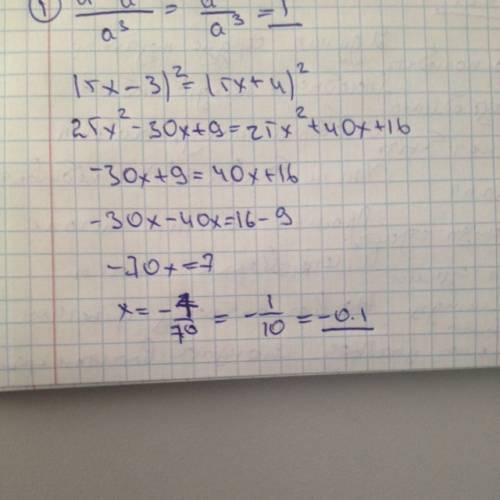 a³ = a³ = 1
(5x - 3)² = (5x + 4)²
25x² - 30x + 9 = 25x² + 40x + 16
-30x + 9 = 40x + 16
-30x - 40x = 16 - 9
-70x = 7
x = - 7/70 = - 1/10 = -0.1